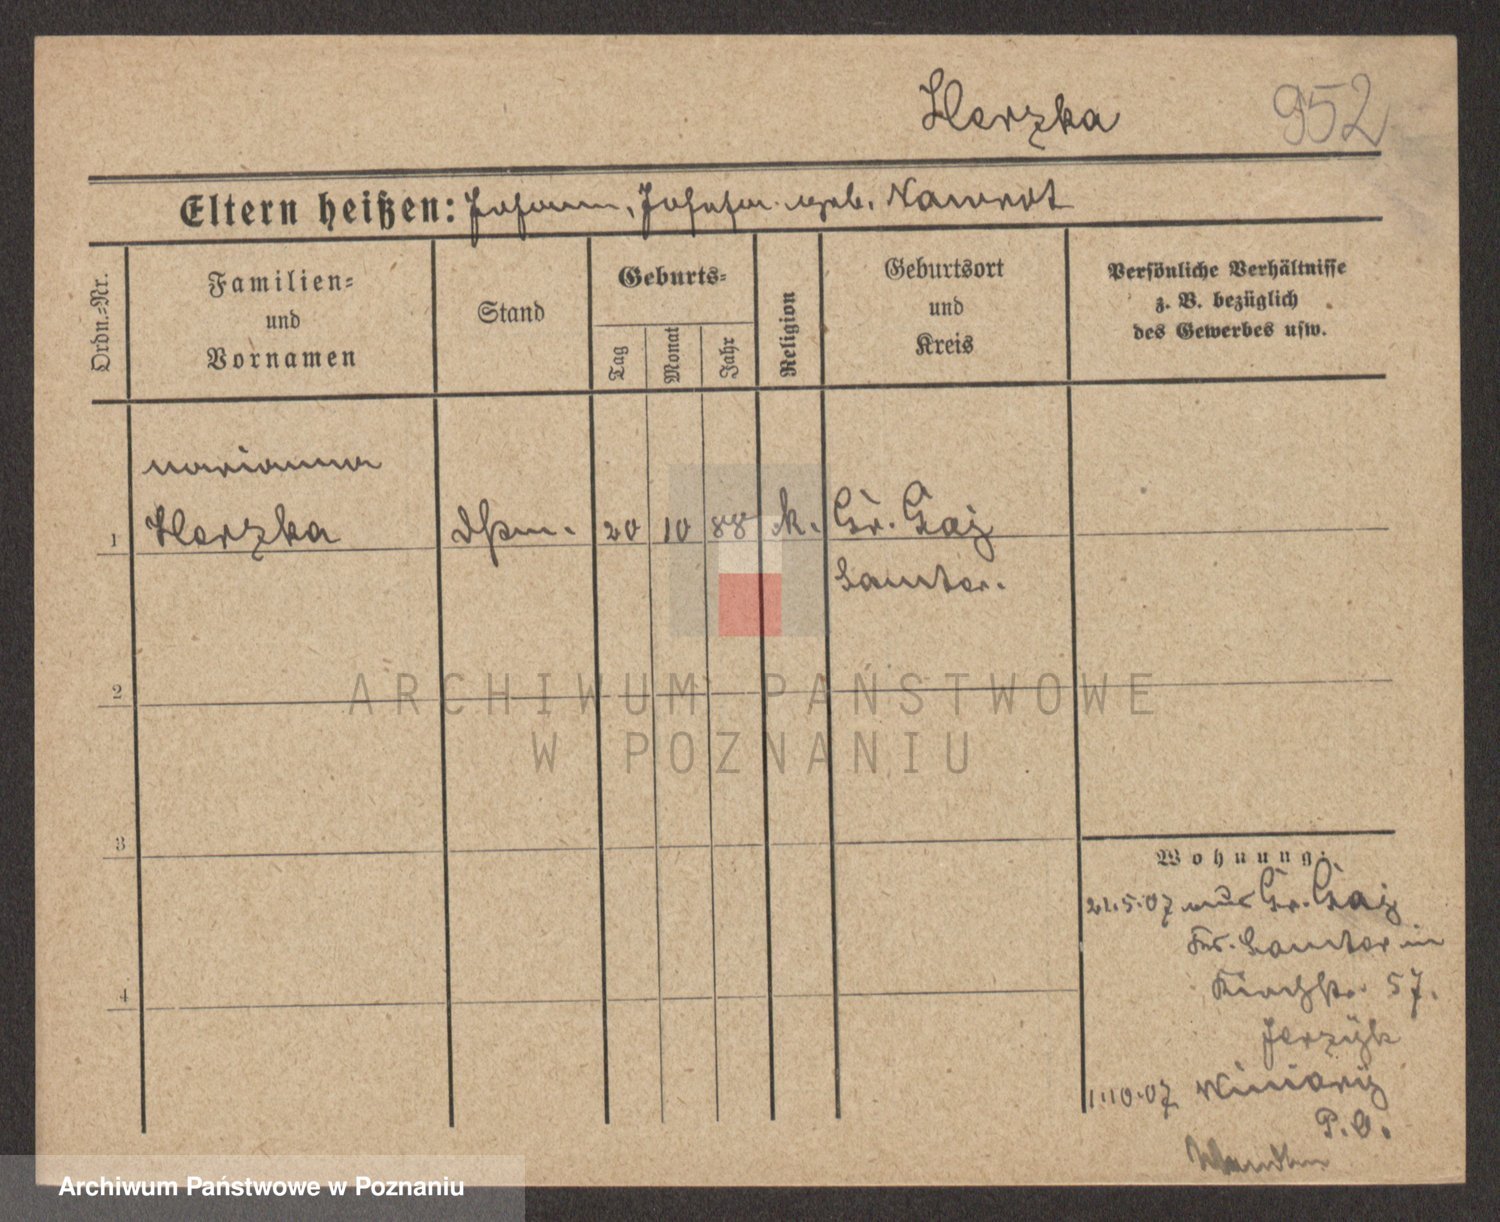 Herzka 952
Eltern heißen: Johann, Josefa geb. Nawrot
Ordn.-Nr.
Familien-
und
Vornamen
Stand
Geburts-
Tag
Monat
Jahr
Religion
Geburtsort
und
Kreis
Persönliche Verhältnisse
z. B. bezüglich
des Gewerbes usw.
Marianna
1 Herzka 20 10 88 k. Gr. Gaj
Samter.
ARCHIWUM PAŃSTWOWE
2
W POZNANIU
3
Wohnung:
21.5.07 aus Gr. Gaj
Krs. Samter in
4
Kirchstr. 57.
1.10.07 Winiary
P. O.
Archiwum Państwowe w Poznaniu